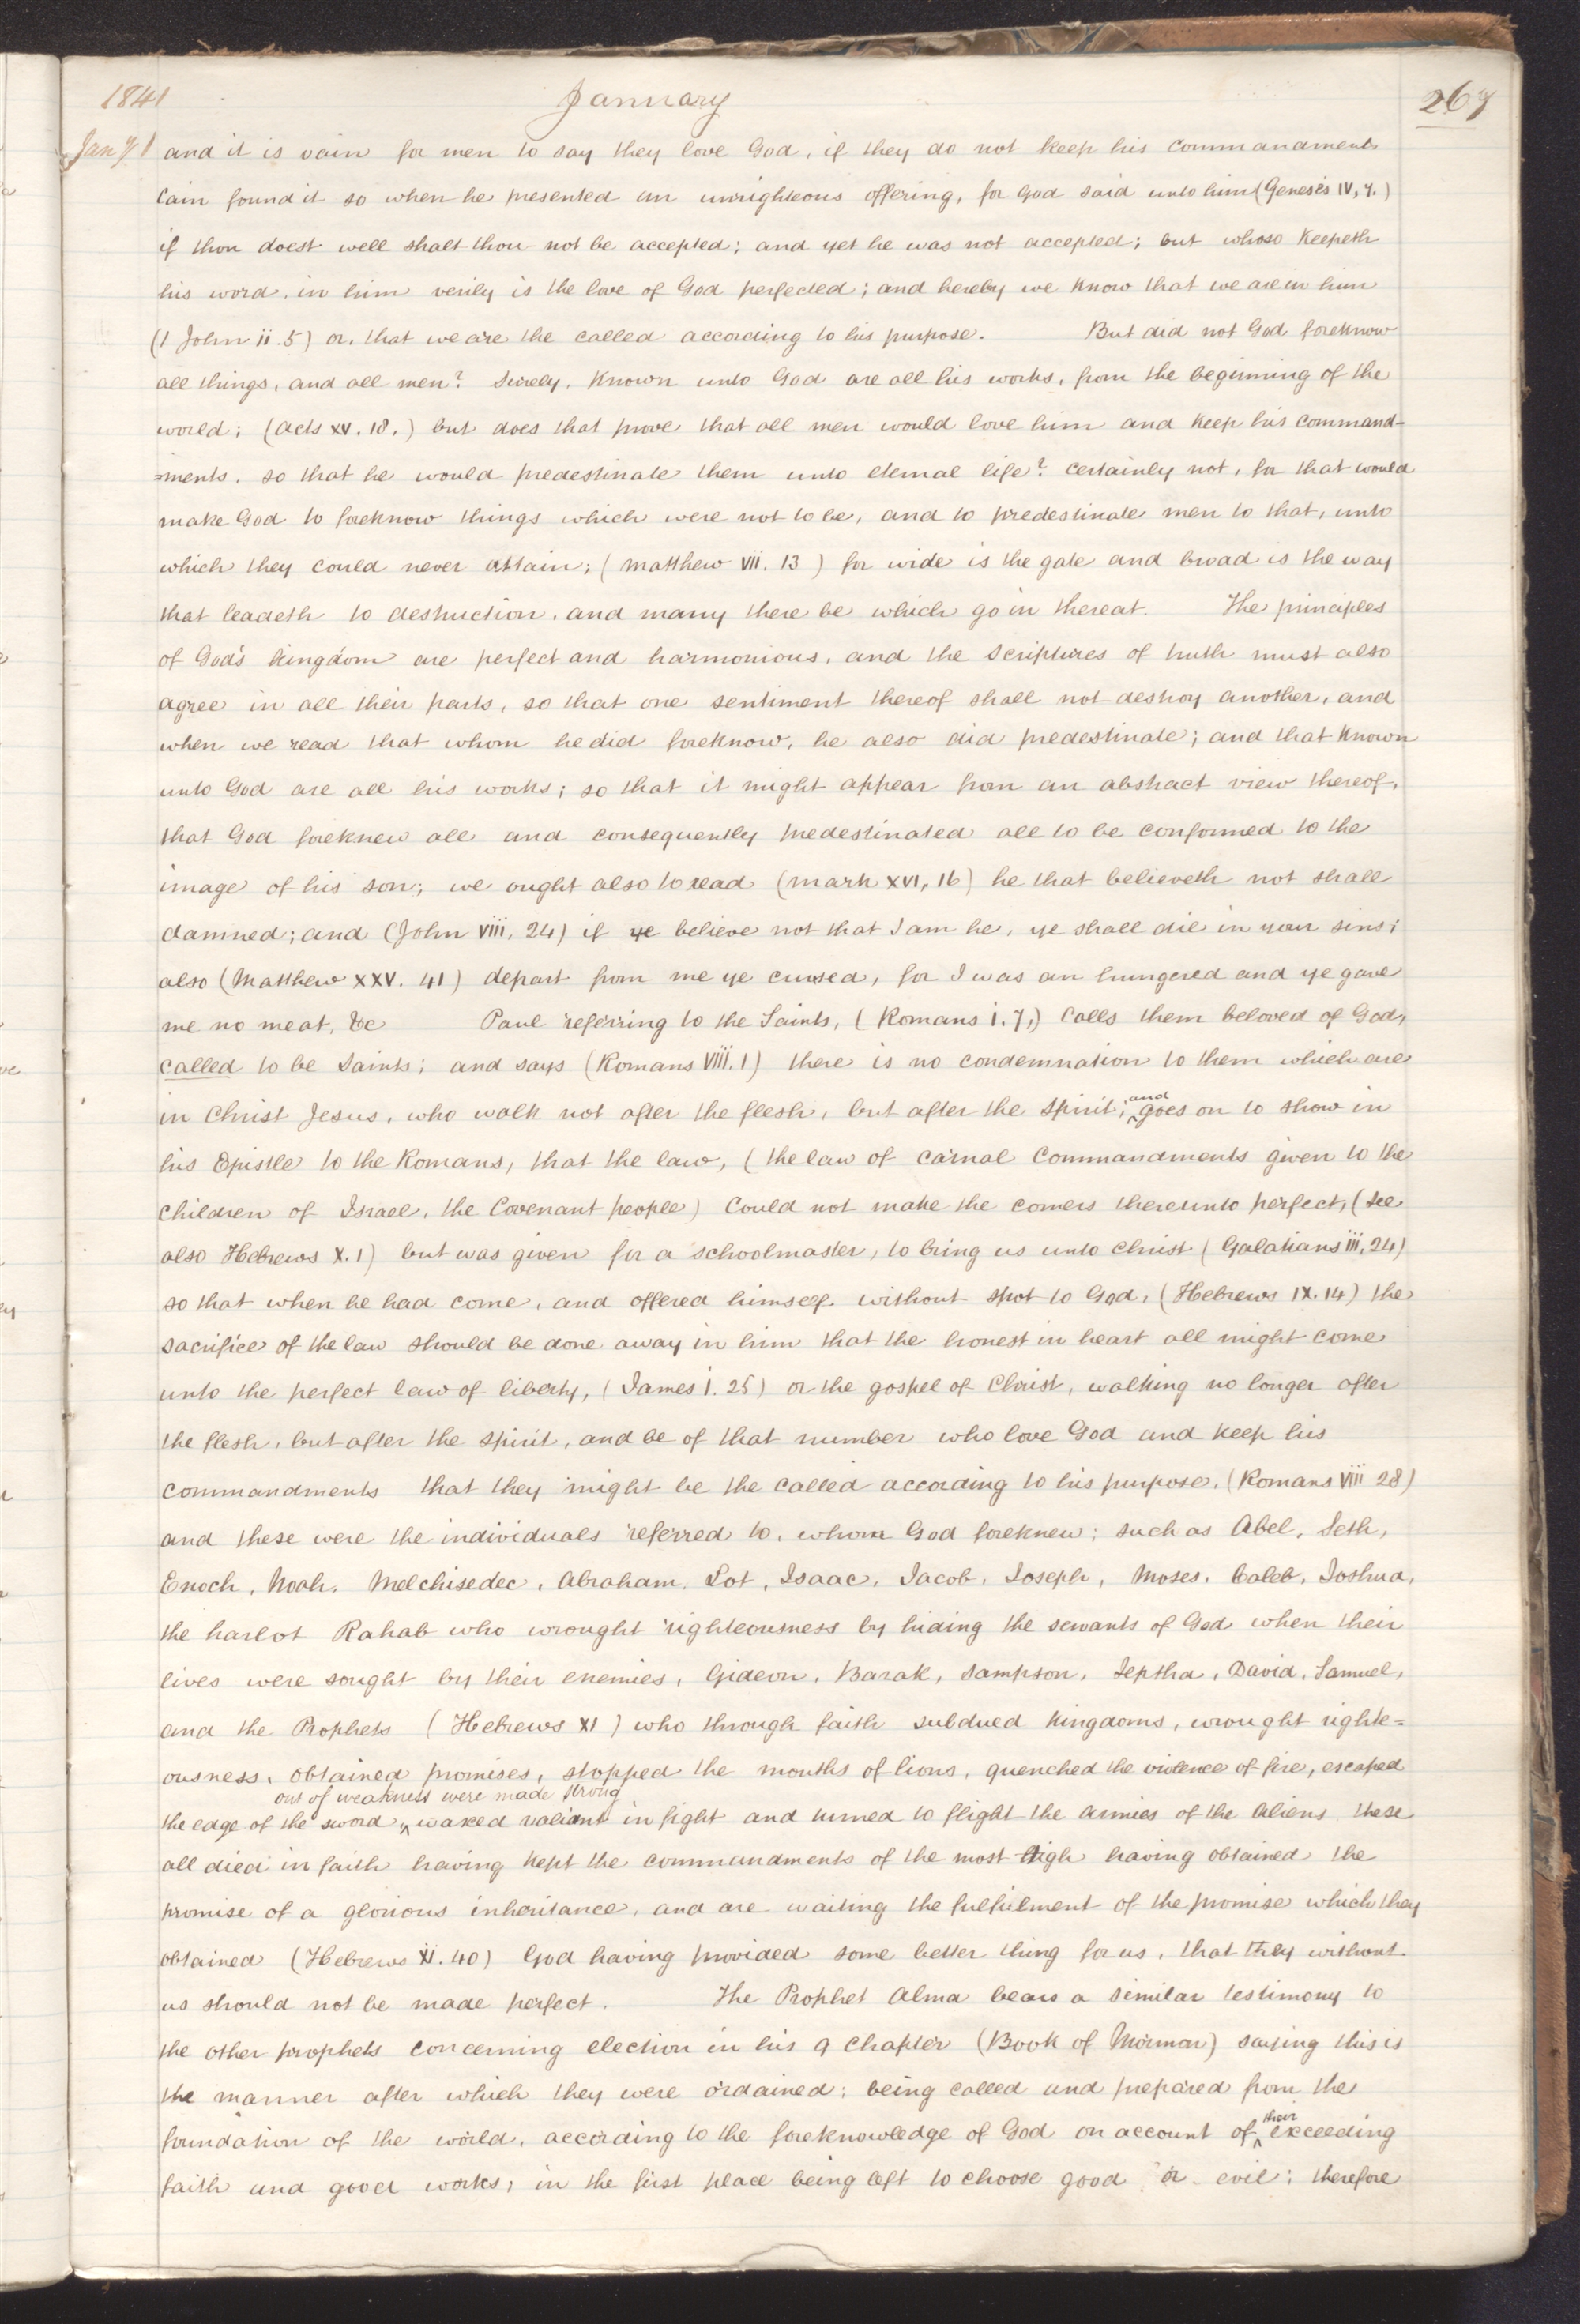 1841 January 267
Jany 1 and it is vain for men to say they love God, if they do not keep his commandments
Cain found it so when he presented an unrighteous offering, for God said unto him (Genesis IV, 7.)
if thou doest well shalt thou not be accepted; and yet he was not accepted; but whoso keepeth
his word, in him verily is the love of God perfected; and hereby we know that we are in him
(1 John ii. 5) or, that we are the called according to his purpose. But did not God foreknow
all things, and all men? Surely, known unto God are all his works, from the beginning of the
world; (Acts XV. 18.) but does that prove that all men would love him and keep his command-
=ments, so that he would predestinate them unto eternal life? certainly not, for that would
make God to foreknow things which were not to be, and to predestinate men to that, unto
which they could never attain; (Matthew VII. 13) for wide is the gate and broad is the way
that leadeth to destruction, and many there be which go in thereat. The principles
of God's kingdom are perfect and harmonious, and the scriptures of truth must also
agree in all their parts, so that one sentiment thereof shall not destroy another, and
when we read that whom he did foreknow, he also did predestinate; and that known
unto God are all his works; so that it might appear from an abstract view thereof,
that God foreknew all and consequently predestinated all to be conformed to the
image of his son; we ought also to read (Mark XVI, 16) he that believeth not shall
damned; and (John VIII. 24) if ye believe not that I am he, ye shall die in your sins;
also (Matthew XXV. 41) depart from me ye cursed, for I was an hungered and ye gave
me no meat, &c Paul referring to the Saints, (Romans i. 7,) calls them beloved of God,
called to be Saints; and says (Romans VIII. 1) there is no condemnation to them which are
in Christ Jesus, who walk not after the flesh, but after the spirit; and goes on to show in
his Epistle to the Romans, that the law, (the law of carnal commandments given to the
children of Israel, the Covenant people) could not make the comers thereunto perfect, (see
also Hebrews X. 1) but was given for a schoolmaster, to bring us unto Christ (Galatians iii, 24)
so that when he had come, and offered himself without spot to God, (Hebrews IX. 14) the
sacrifice of the law should be done away in him that the honest in heart all might come
unto the perfect law of liberty, (James i. 25) or the gospel of Christ, walking no longer after
the flesh, but after the spirit, and be of that number who love God and keep his
commandments that they might be the called according to his purpose, (Romans VIII 28)
and these were the individuals referred to, whom God foreknew; such as Abel, Seth,
Enoch, Noah, Melchisedec, Abraham, Lot, Isaac, Jacob, Joseph, Moses, Caleb, Joshua,
the harlot Rahab who wrought righteousness by hiding the servants of God when their
lives were sought by their enemies, Gideon, Barak, Sampson, Jeptha, David, Samuel,
and the Prophets (Hebrews XI) who through faith subdued kingdoms, wrought righte=
ousness, obtained promises, stopped the mouths of lions, quenched the violence of fire, escaped
the edge of the sword, out of weakness were made strong waxed valiant in fight and turned to flight the armies of the aliens these
all died in faith having kept the commandments of the most high having obtained the
promise of a glorious inheritance, and are waiting the fulfilment of the promise which they
obtained (Hebrews XI. 40) God having provided some better thing for us, that they without
us should not be made perfect. The Prophet Alma bears a similar testimony to
the other prophets concerning election in his 9 Chapter (Book of Mormon) saying this is
the manner after which they were ordained; being called and prepared from the
foundation of the world, according to the foreknowledge of God on account of their exceeding
faith and good works; in the first place being left to choose good or evil; therefore